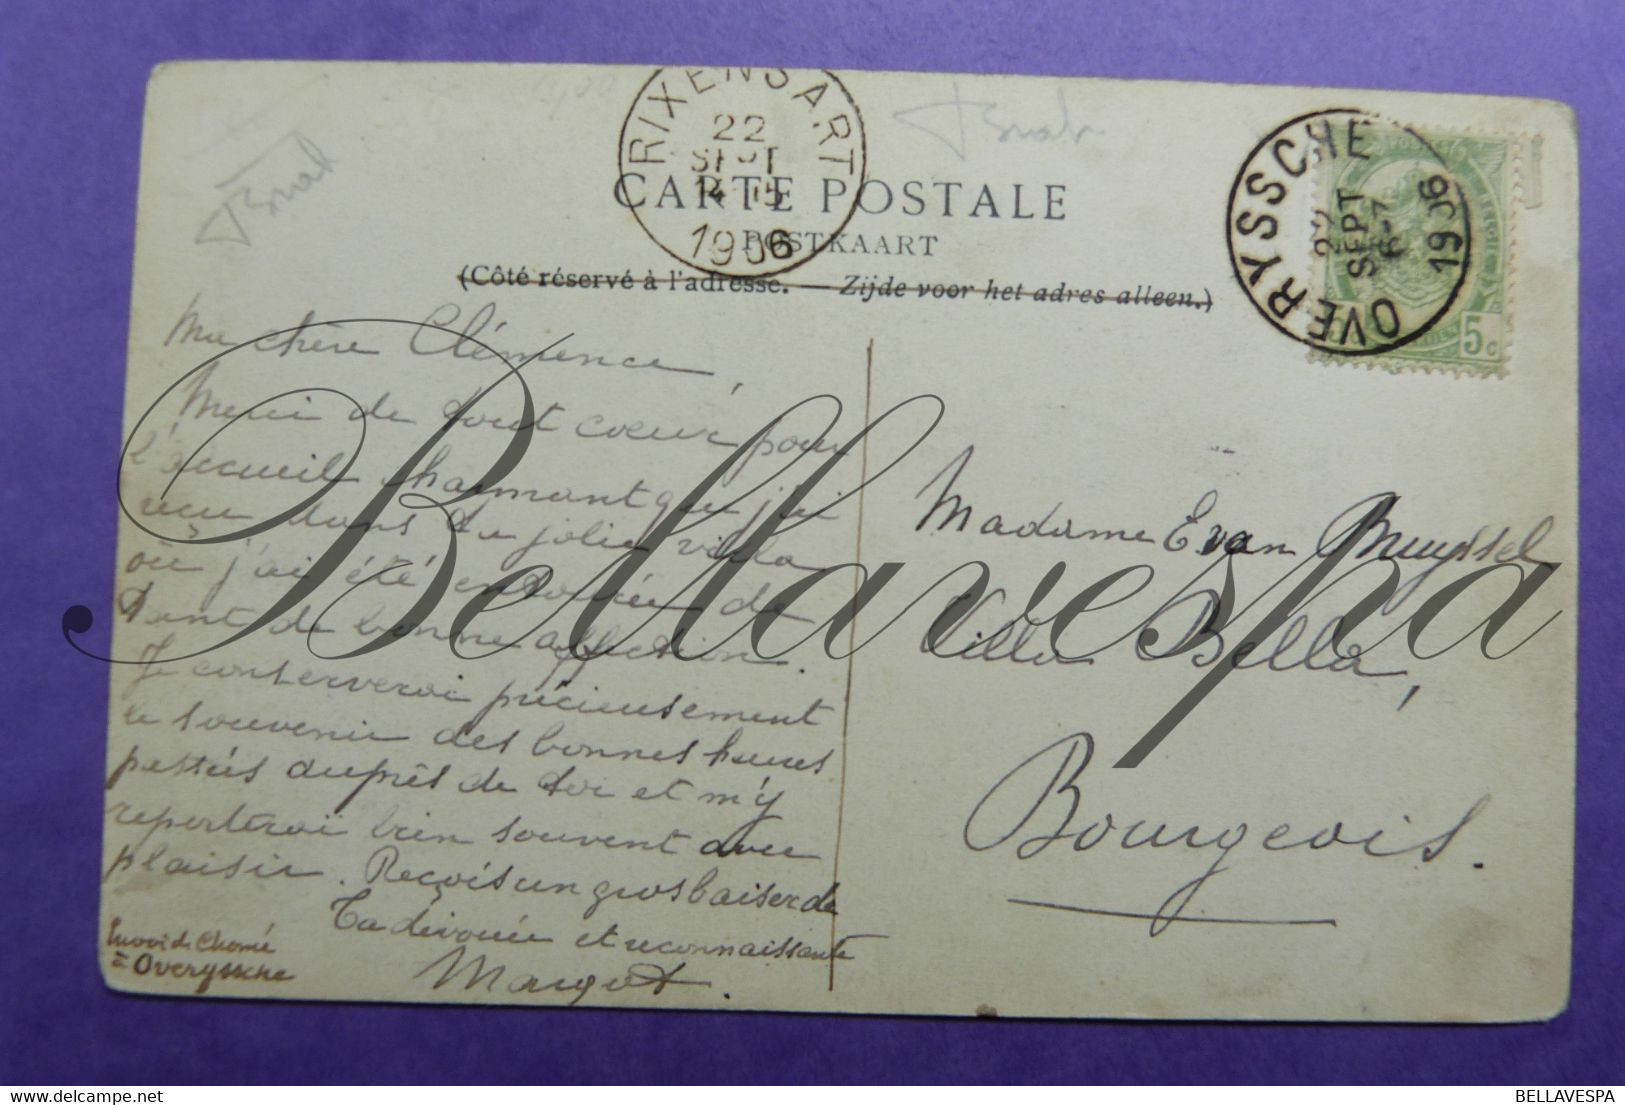 RIXENSART
22
SEPT
14-15
1906
OVERYSSCHE
22
SEPT
6-7
1906
5c
CARTE POSTALE
POSTKAART
(Côté réservé à l'adresse. — Zijde voor het adres alleen.)
Ma chère Clémence,
Merci de tout coeur pour
l'accueil charmant que j'ai
reçu dans ta jolie villa
où j'ai été entourée de
tant de bonne affection.
Je conserverai précieusement
le souvenir des bonnes heures
passées auprès de toi et m'y
reporterai bien souvent avec
plaisir. Reçois un gros baiser de
Ta dévouée et reconnaissante
Margot.
Envoi de Chomé
= Overyssche
Madame E. van Bruyssel
Villa Bella,
Bourgeois.
Bellavespa
BELLAVESPA